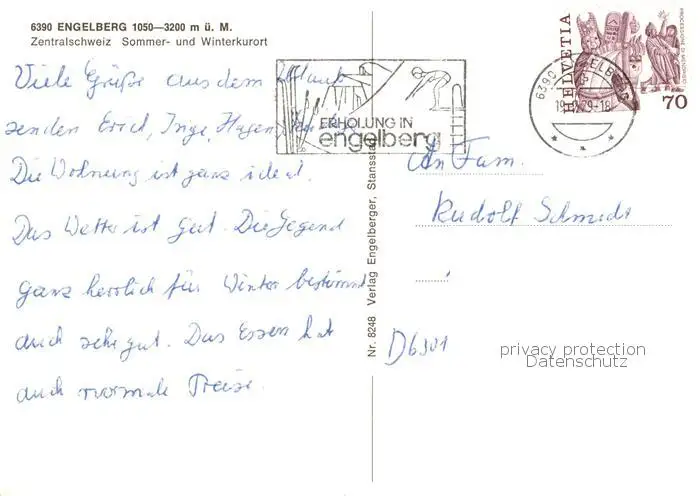 6390 ENGELBERG 1050—3200 m ü. M.
Zentralschweiz Sommer- und Winterkurort
Viele Grüße aus dem Urlaub
senden Erich, Inge, Hagen,
Die Wohnung ist ganz ideal.
Das Wetter ist gut. Die Gegend
ganz herrlich für Winter bestimmt
auch sehr gut. Das Essen hat
auch normale Preise.
ERHOLUNG IN
engelberg
6390 ENGELBERG
79-18
HELVETIA
70
Nr. 8248 Verlag Engelberger, Stansstad
An Fam.
Rudolf Schmidt
D6301
privacy protection
Datenschutz